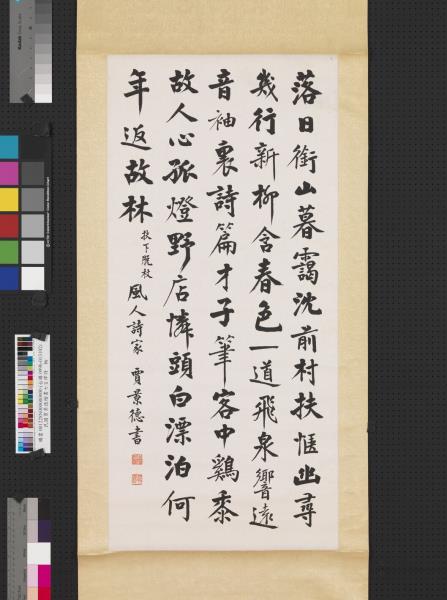 落日銜山暮靄沈前村扶愜幽尋
幾行新柳含春色一道飛泉響遠
音袖裏詩篇才子筆客中鷄黍
故人心孤燈野店憐頭白漂泊何
年返故林
扶下脫杖
風人詩家 賈景德書